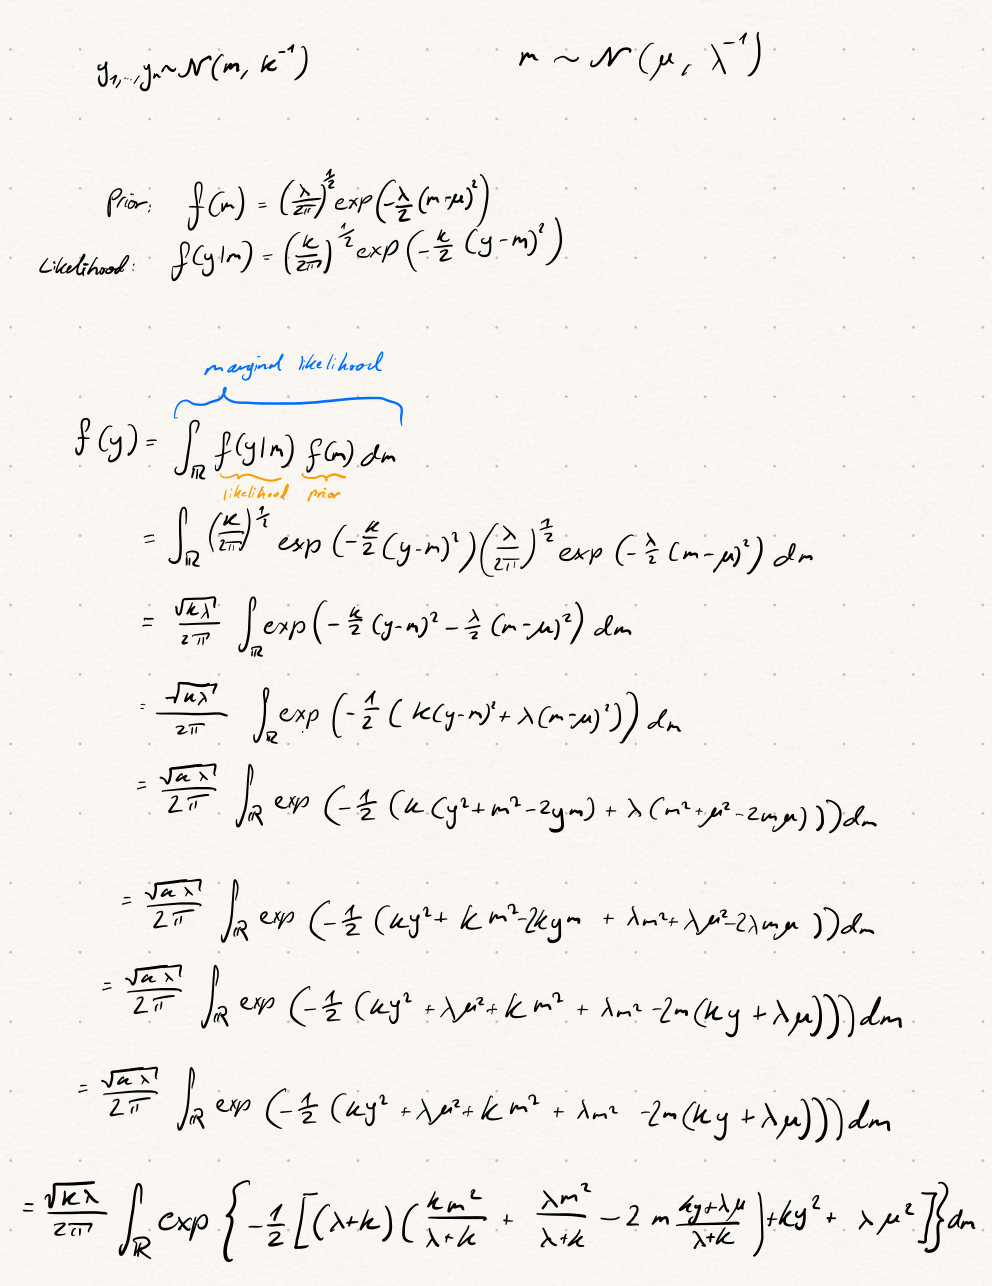 y₁,...,yₙ ~ 𝒩(m, k⁻¹) m ~ 𝒩(μ, λ⁻¹)
Prior: f(m) = (λ/2π)^{1/2} exp(-λ/2 (m-μ)²)
Likelihood: f(y|m) = (k/2π)^{1/2} exp(-k/2 (y-m)²)
marginal likelihood
f(y) = ∫_ℝ f(y|m) f(m) dm
likelihood prior
= ∫_ℝ (k/2π)^{1/2} exp(-k/2 (y-m)²)(λ/2π)^{1/2} exp(-λ/2 (m-μ)²) dm
= √(kλ)/2π ∫_ℝ exp(-k/2 (y-m)² - λ/2 (m-μ)²) dm
= √(kλ)/2π ∫_ℝ exp(-1/2 (k(y-m)² + λ(m-μ)²)) dm
= √(kλ)/2π ∫_ℝ exp(-1/2 (k(y²+m²-2ym) + λ(m²+μ²-2mμ))) dm
= √(kλ)/2π ∫_ℝ exp(-1/2 (ky² + km² - 2kym + λm² + λμ² - 2λmμ)) dm
= √(kλ)/2π ∫_ℝ exp(-1/2 (ky² + λμ² + km² + λm² - 2m(ky + λμ))) dm
= √(kλ)/2π ∫_ℝ exp(-1/2 (ky² + λμ² + km² + λm² -2m(ky + λμ))) dm
= √(kλ)/2π ∫_ℝ exp{-1/2 [(λ+k)(km²/(λ+k) + λm²/(λ+k) - 2m (ky+λμ)/(λ+k)) + ky² + λμ²]} dm